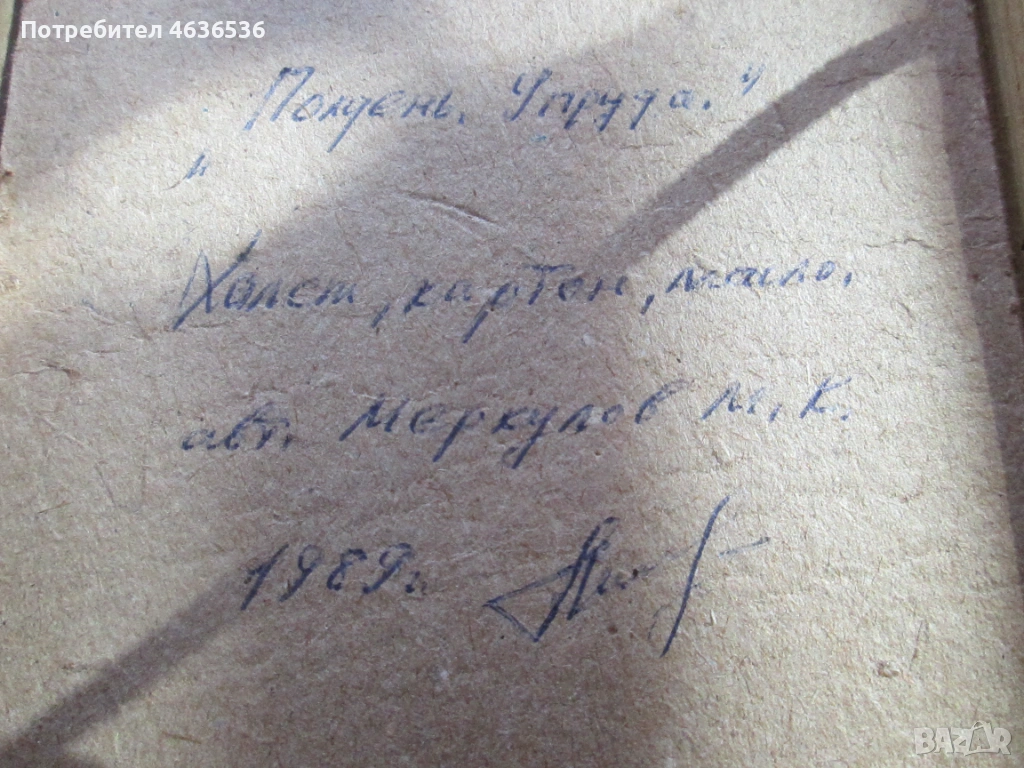 Потребител 4636536
„Полдень. У пруда."
Холст, картон, масло.
авт. Меркулов М.К.
1989г.
BAZAR